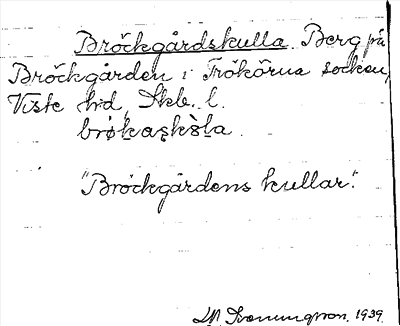 Bröckgårdskulla. Berg på
Bröckgården i Trökörna socken,
Viste hd, Skb. l.
"Bröckgårdens kullar".
1939